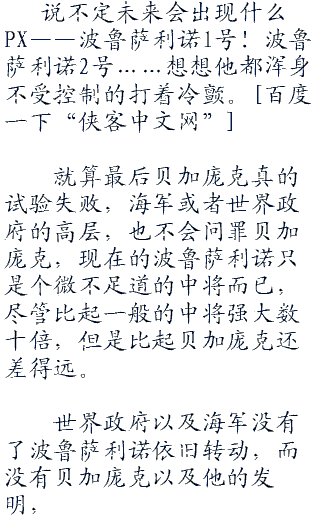 说不定未来会出现什么
PX——波鲁萨利诺1号！波鲁
萨利诺2号……想想他都浑身
不受控制的打着冷颤。[百度
一下“侠客中文网”]
就算最后贝加庞克真的
试验失败，海军或者世界政
府的高层，也不会问罪贝加
庞克，现在的波鲁萨利诺只
是个微不足道的中将而已，
尽管比起一般的中将强大数
十倍，但是比起贝加庞克还
差得远。
世界政府以及海军没有
了波鲁萨利诺依旧转动，而
没有贝加庞克以及他的发
明，